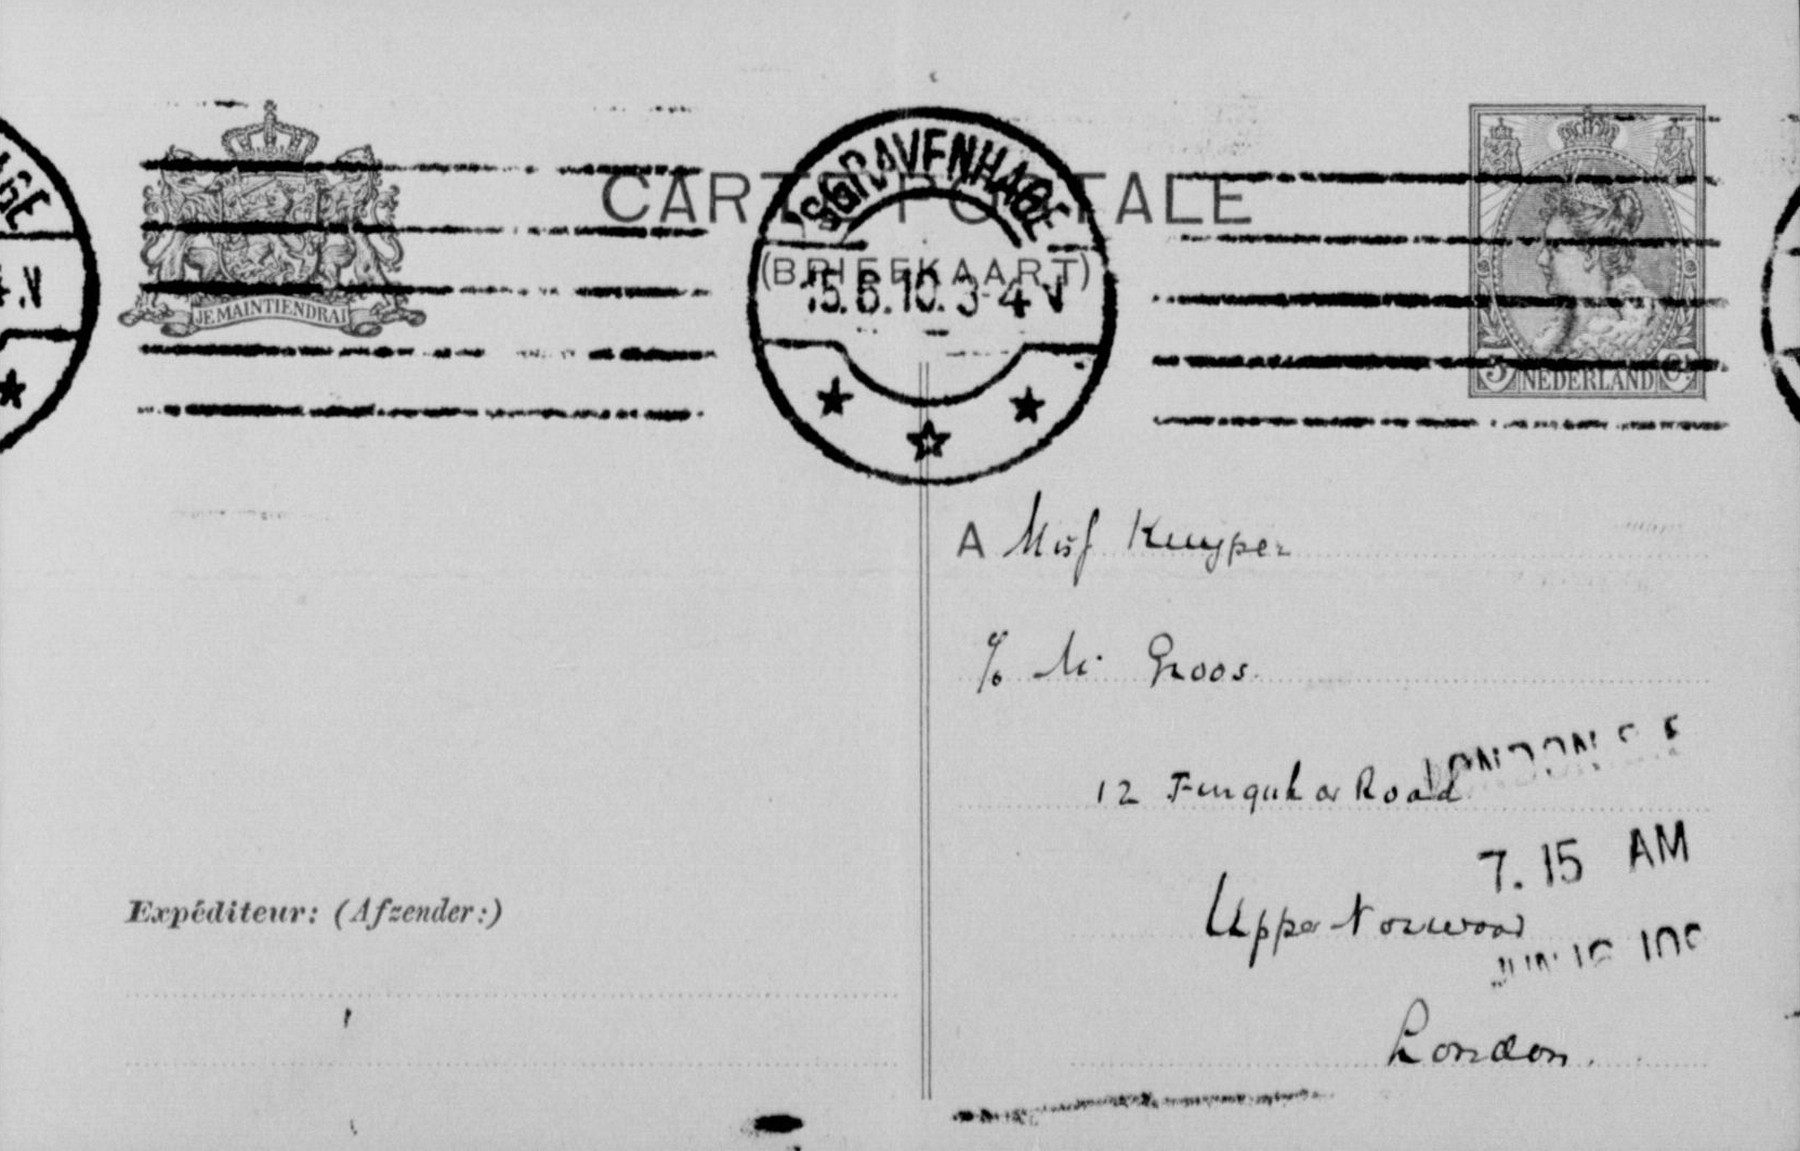 AGE
4.V
JE MAINTIENDRAI
CARTE POSTALE
'SGRAVENHAGE
(BRIEFKAART)
15.6.10. 3-4 V
5 NEDERLAND Ct
A Miss Kuyper
c/o Mr Groos.
12 Farquhar Road
LONDON S.E
7.15 AM
Upper Norwood
JUN 16 10
London.
Expéditeur: (Afzender:)